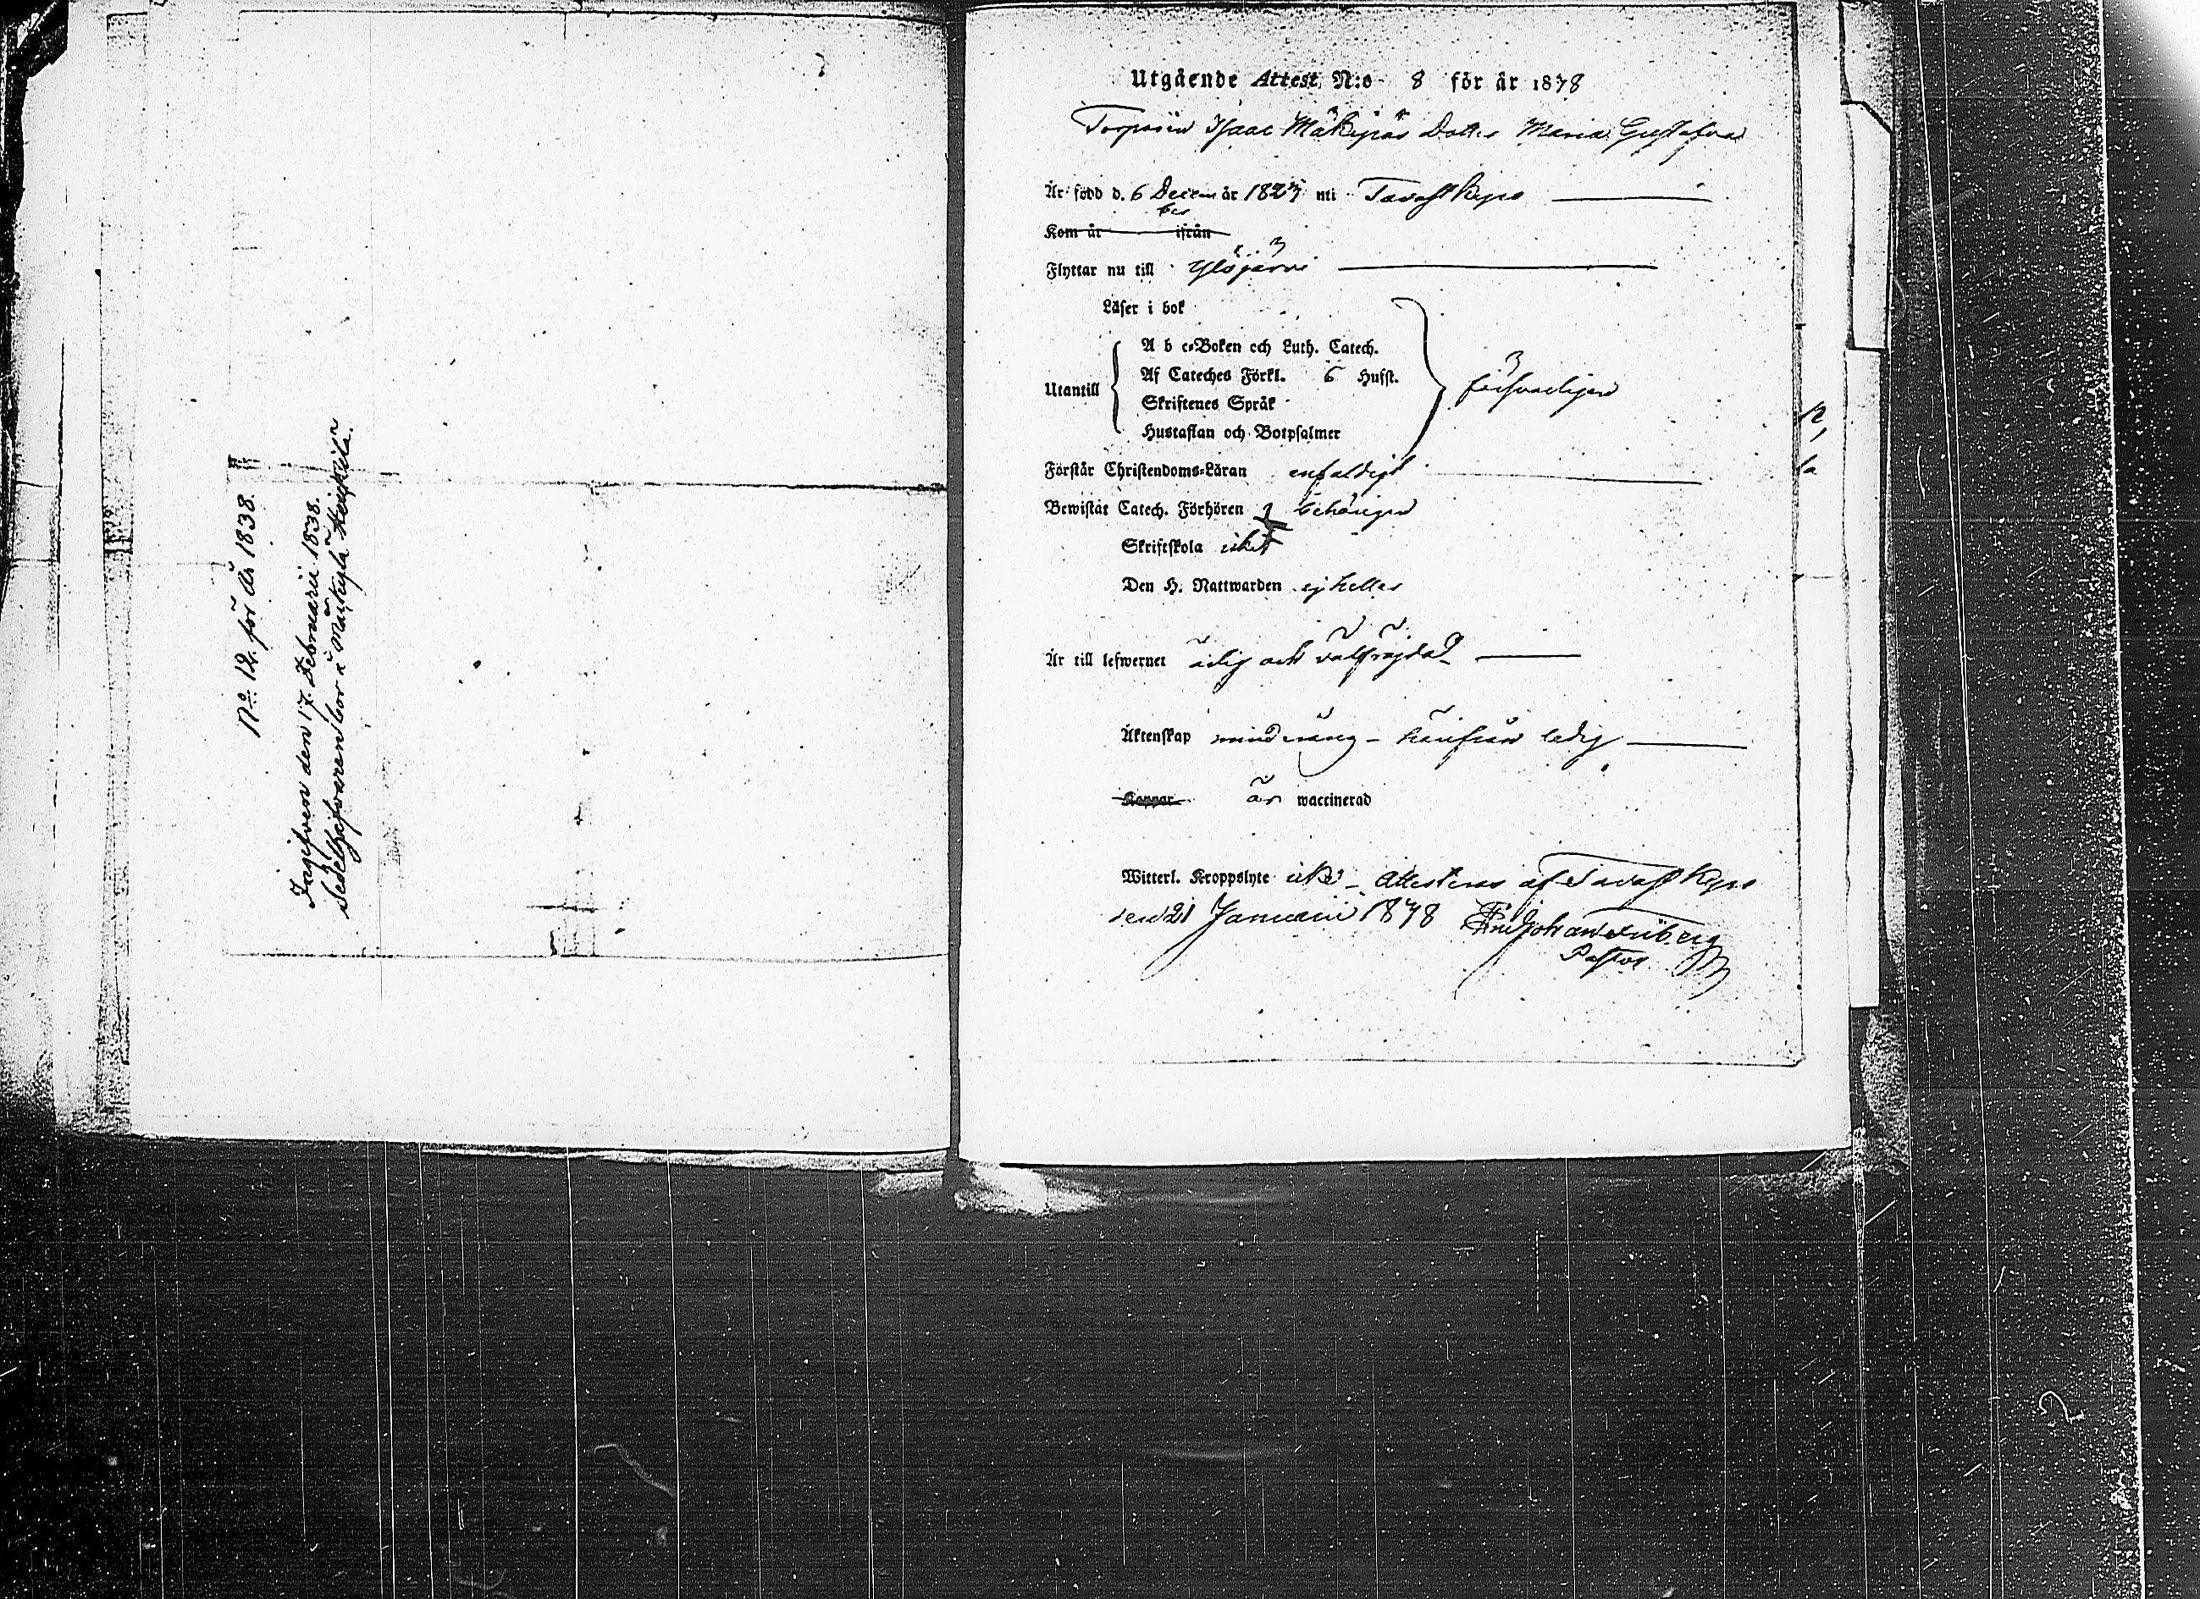 No: 12. för År 1838.
Ingifven den 17. Februarii 1838.
Sedelhafvaren bor i Mäkkylä Heikkilä.
Utgående Attest N:o 8 för år 1838
Torparen Isaac Mäkipää Dotter Maria Gustafva
Är född d. 6 Decem ber år 1823 uti Tavastkyro
Kom år ifrån
Flyttar nu till Ylöjärvi
Läser i bok
A b c-Boken och Luth. Catech.
Af Cateches Förkl. 6 Hufst.
Utantill försvarligen
Skriftenes Språk
Hustaflan och Botpsalmer
Förstår Christendoms-Läran enfaldigt
Bewistat Catech. Förhören behörigen
Skriftskola icke
Den H. Nattwarden ej heller
Är till lefwernet ärlig och välfräjdad
Äktenskap minderårig - härifrån ledig
Koppor är waccinerad
Witterl. Kroppslyte icke - Attesteras af Tavastkyro
den 21 Januarii 1838
Pastor